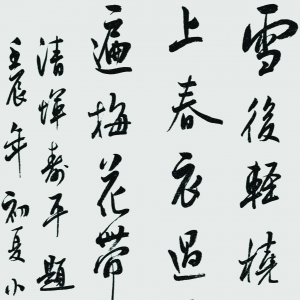 雪後輕橈
上春衣過
遍梅花帶
清惲壽平題
壬辰年初夏小